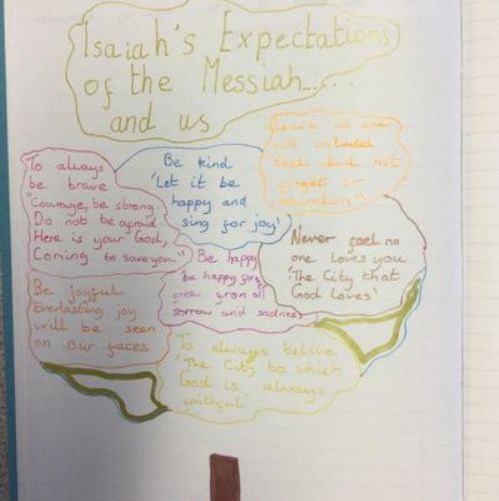 Isaiah's Expectations
of the Messiah......
and us
To always
be brave
"Courage, be strong.
Do not be afraid.
Here is your God,
Coming to save you."
Be kind
'Let it be
happy and
sing for joy'
God did not
forget or
Never feel no
one loves you
'The City that
God Loves'
Be happy
be happy
sorrow and sadness
Be joyful
Everlasting joy
will be seen
on our faces
To always belive
'The City to which
God is always
faithful